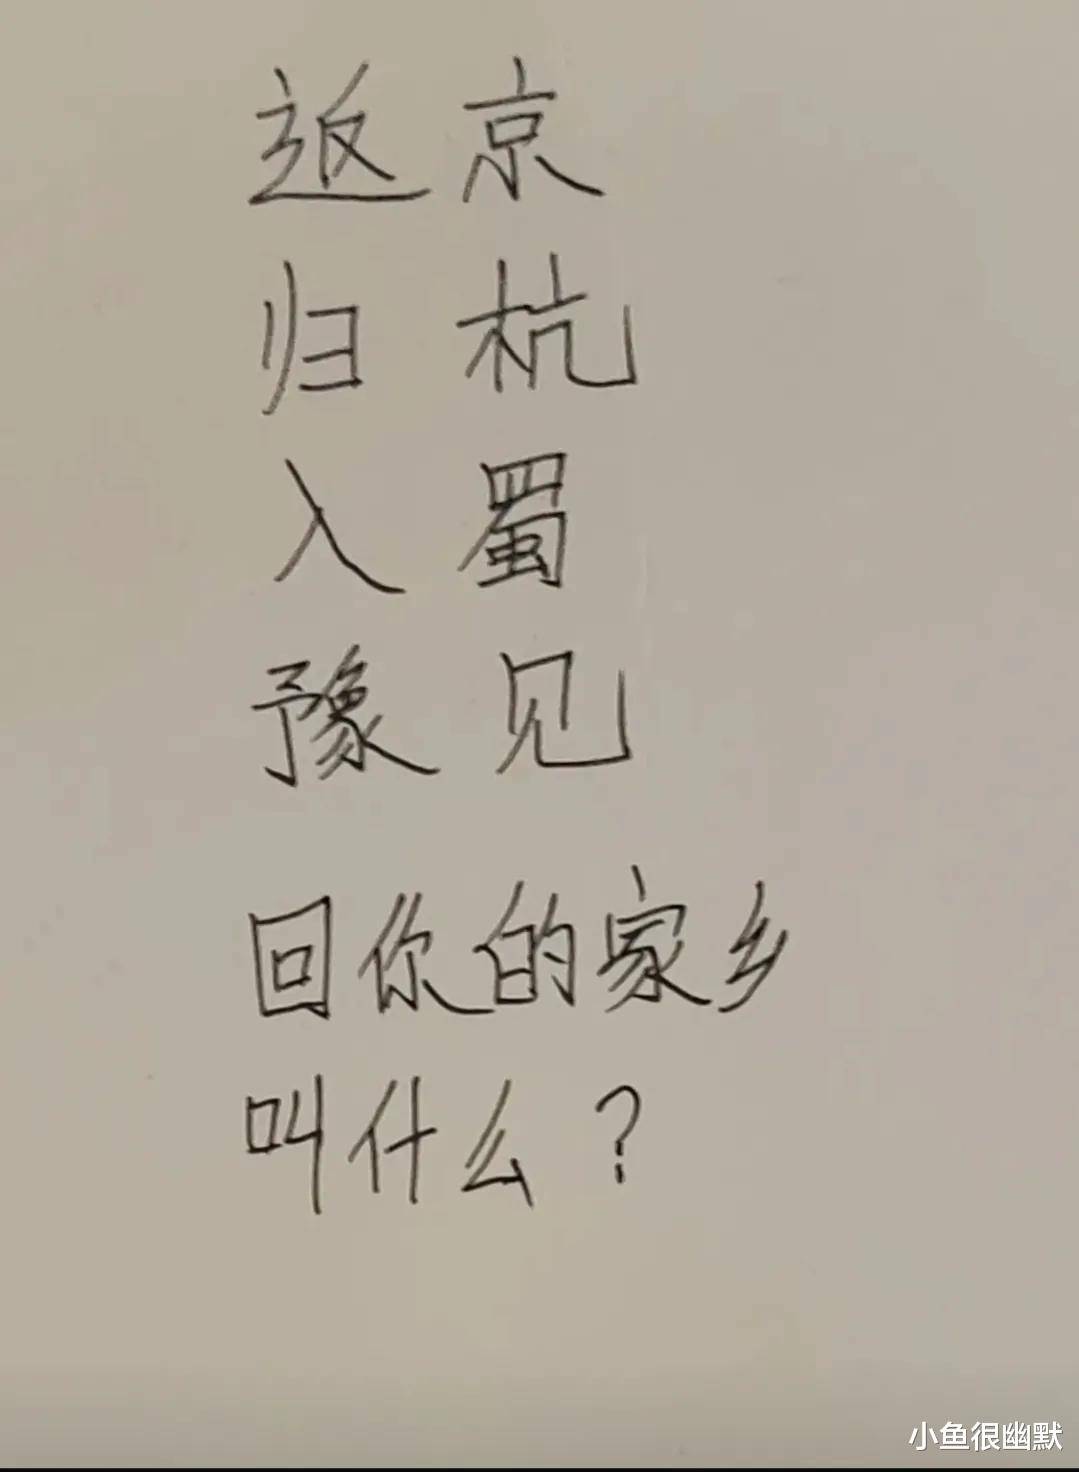 返京
归杭
入蜀
豫见
回你的家乡
叫什么？
小鱼很幽默